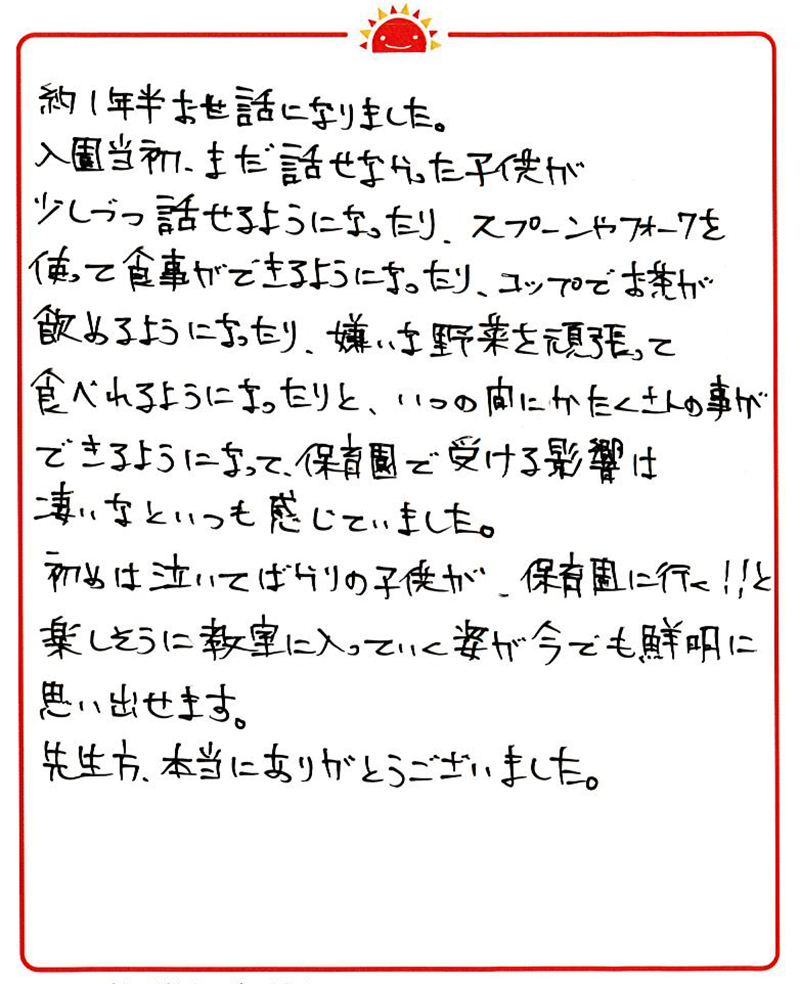 約1年半お世話になりました。
入園当初、まだ話せなかった子供が
少しづつ話せるようになったり、スプーンやフォークを
使って食事ができるようになったり、コップでお茶が
飲めるようになったり、嫌いな野菜を頑張って
食べれるようになったりと、いつの間にかたくさんの事が
できるようになって、保育園で受ける影響は
凄いなといつも感じていました。
初めは泣いてばかりの子供が、保育園に行く!!と
楽しそうに教室に入っていく姿が今でも鮮明に
思い出せます。
先生方、本当にありがとうございました。